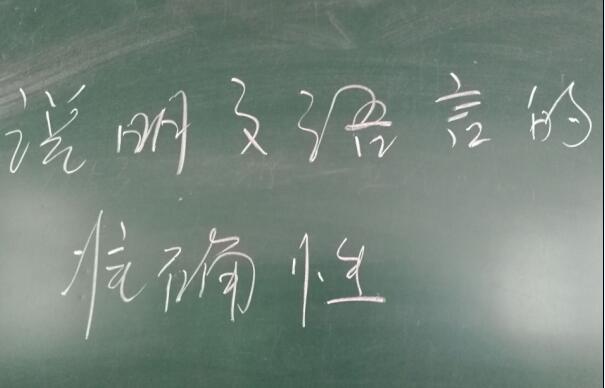 说明文语言的
准确性